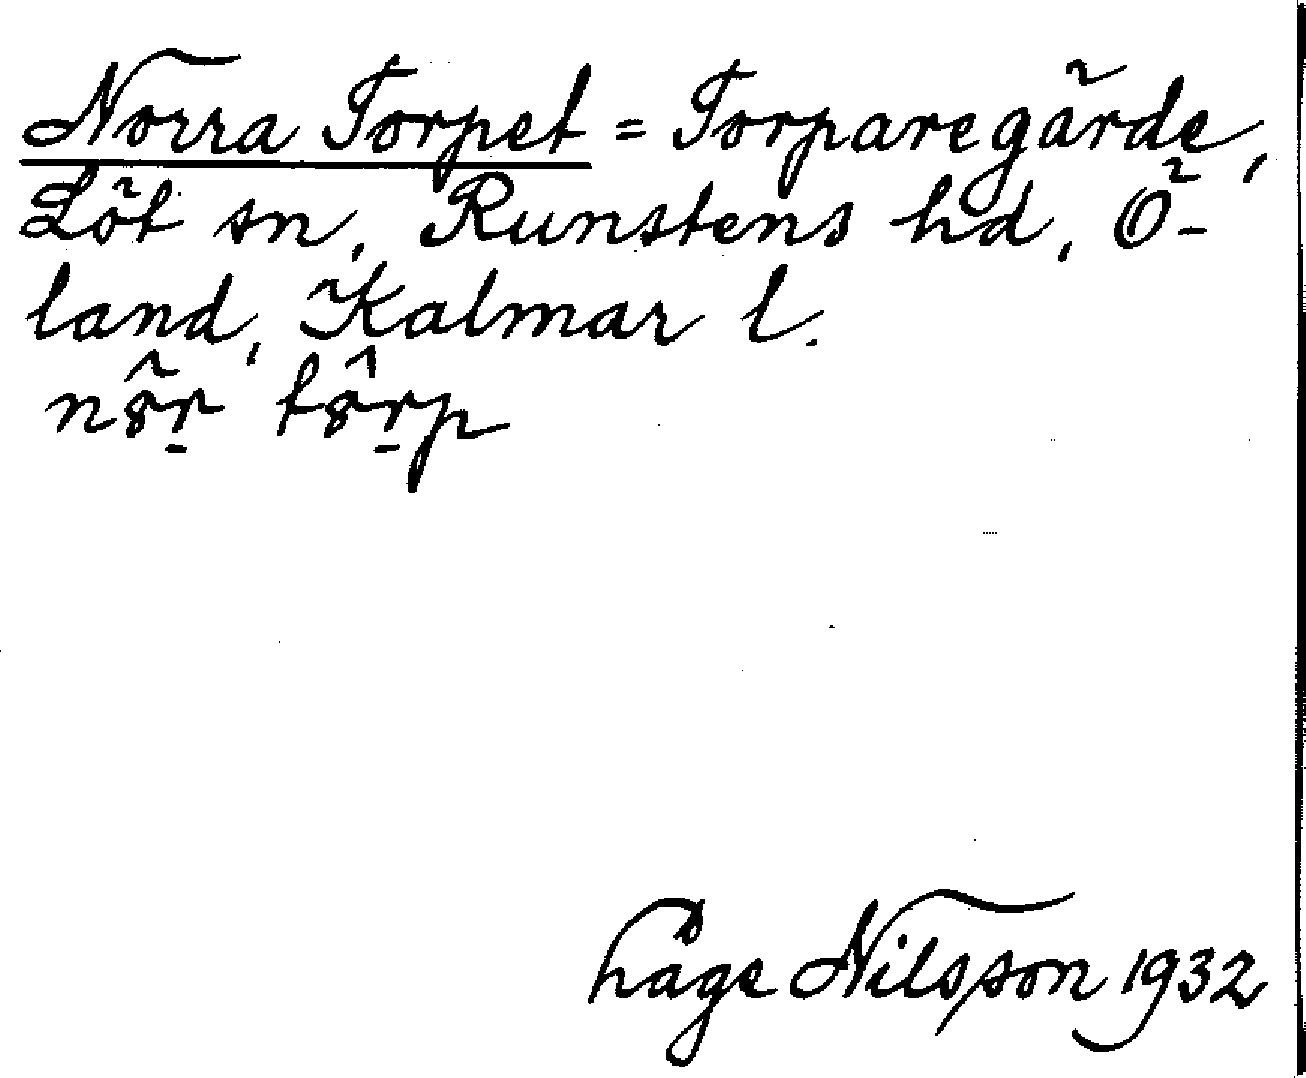 Norra Torpet = Torparegärde,
Löt sn, Runstens hd, Ö-
land, Kalmar l.
Åge Nilsson 1932